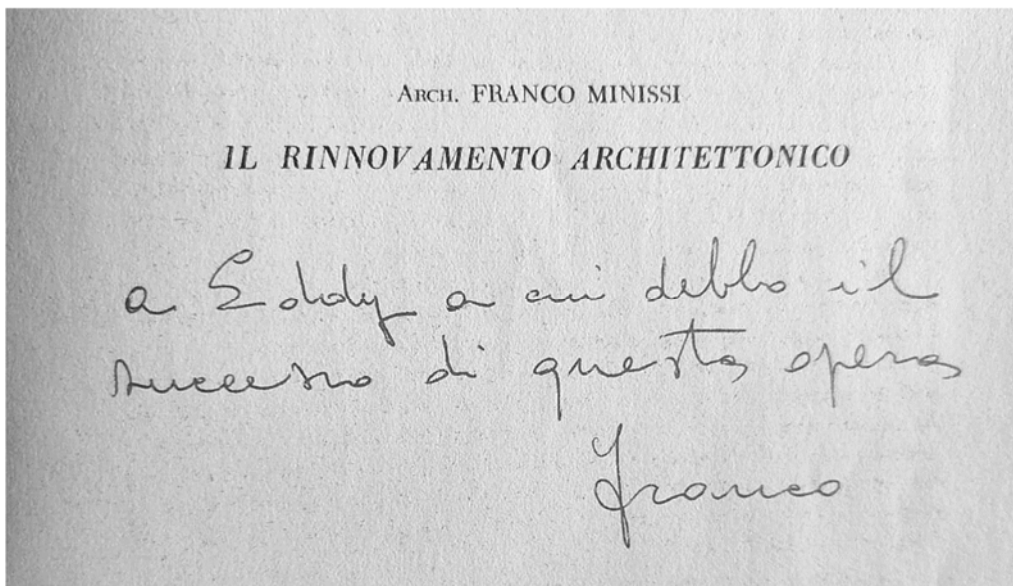 Arch. FRANCO MINISSI
IL RINNOVAMENTO ARCHITETTONICO
a Eddy a cui debbo il
successo di questa opera
Franco